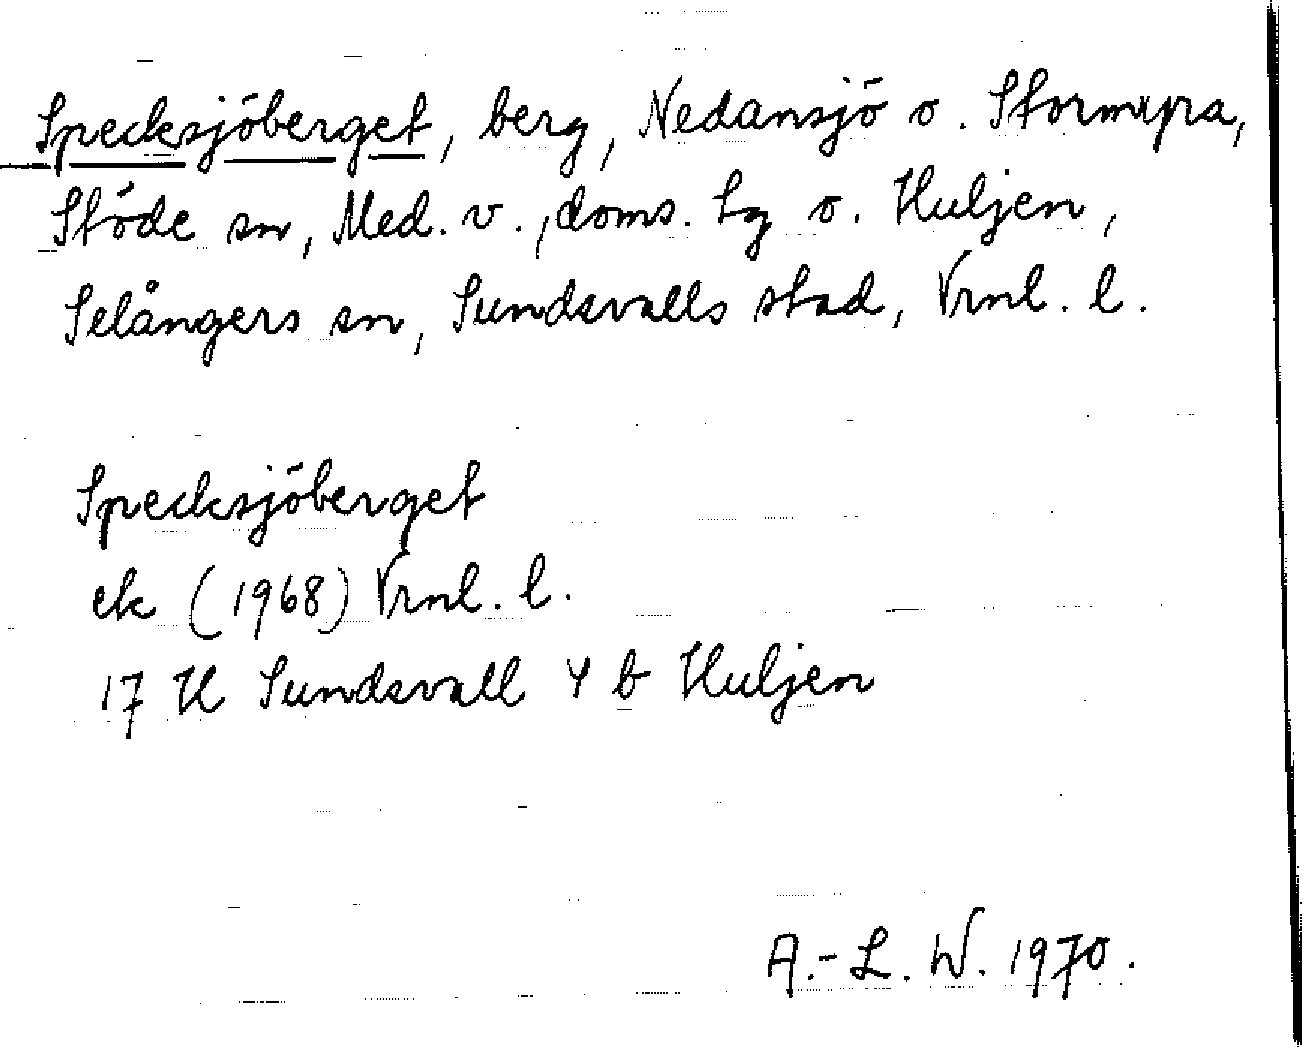 Specksjöberget, berg, Nedansjö o. Stormyra,
Stöde sn, Med. v., doms. hg o. Huljen,
Selångers sn, Sundsvalls stad, Vrnl. l.
Specksjöberget
ek (1968) Vrnl. l.
17 H Sundsvall 4 b Huljen
A.-L. W. 1970.